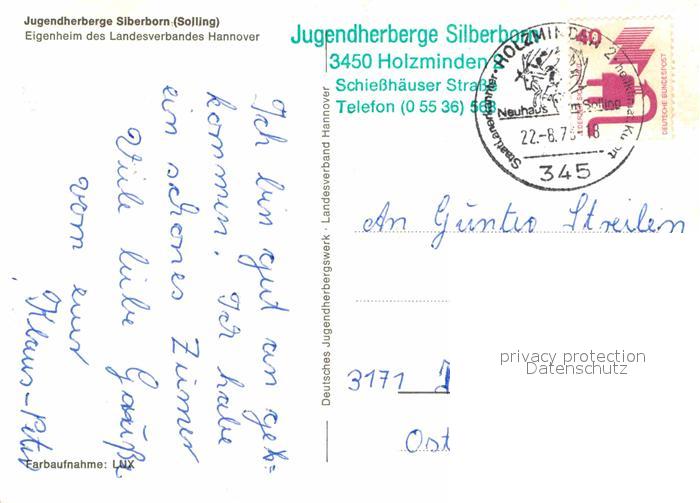 Jugendherberge Silberborn (Solling)
Eigenheim des Landesverbandes Hannover
Jugendherberge Silberborn
3450 Holzminden
Schießhäuser Straße
Telefon (0 55 36) 568
HOLZMINDEN 2
Staatl. anerkannter heilklimat. Kurort
Neuhaus im Solling
22.-8.7 -18
345
DEUTSCHE BUNDESPOST
Ich bin gut an gek=
kommen. Ich habe
ein schönes Zimmer
Viele liebe Grüße
von eur
Klaus-Peter
Deutsches Jugendherbergswerk · Landesverband Hannover
An Günter Streilein
3171
Ost
privacy protection
Datenschutz
Farbaufnahme: LUX